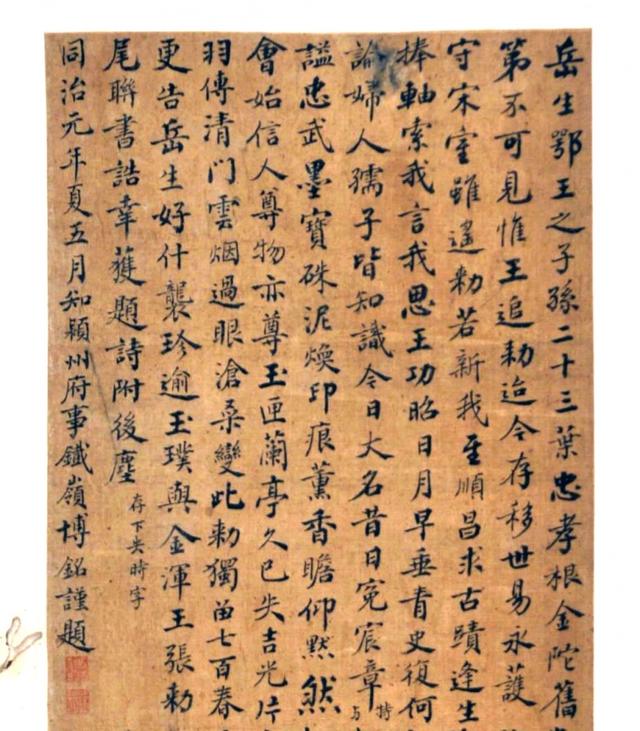 岳生鄂王之子孫二十三葉忠孝根金陀舊
第不可見惟王追勅迨今存移世易永護
守宋室雖遙勅若新我至順昌求古蹟逢生
捧軸索我言我思王功昭日月早垂青史復何
論婦人孺子皆知識今日大名昔日冤宸章特与
謚忠武墨寶硃泥煥印痕薰香瞻仰黙然
會始信人尊物亦尊玉匣蘭亭久已失吉光片
羽傳清門雲烟過眼滄桑變此勅獨留七百春
更告岳生好什襲珍逾玉璞與金渾王張勅
尾聯書誥幸獲題詩附後塵
存下失時字
同治元年夏五月知潁州府事鐵嶺博銘謹題